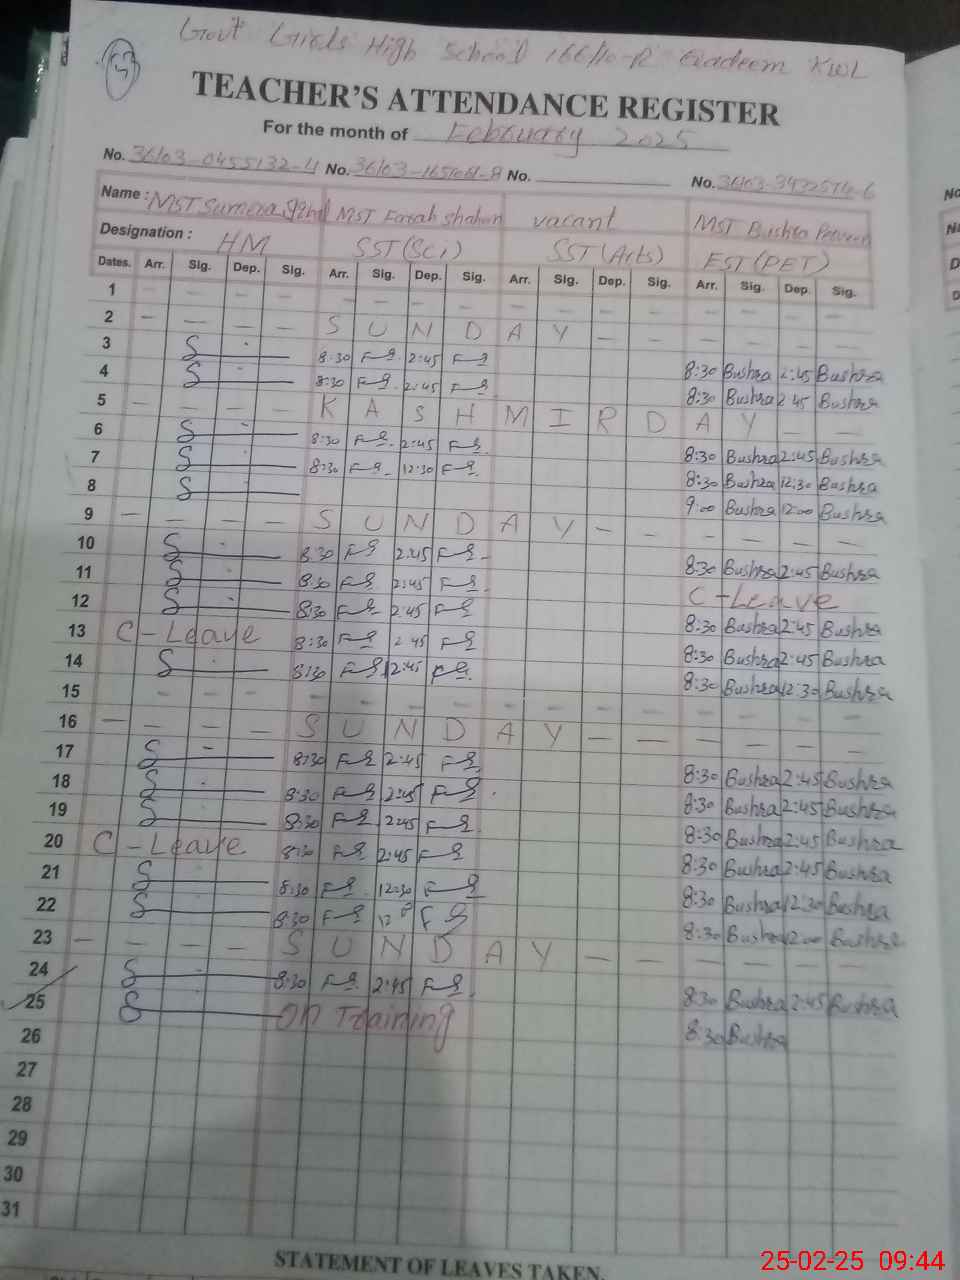 Govt Girls High School 166/10-R Qadeem KWL
TEACHER'S ATTENDANCE REGISTER
For the month of February 2025
No. 36103-0455132-4 No. No. No.
Name: MST Sumera MST Farah Shaheen vacant MST Bushra Parveen
Designation: HM SST(Sci) SST(Arts) EST(PET)
Dates. Arr. Sig. Dep. Sig. Arr. Sig. Dep. Sig. Arr. Sig. Dep. Sig. Arr. Sig. Dep. Sig.
1 — — — — — — — — — — — —
2 — — — — S U N D A Y — — — — — —
3 8:30 2:45 8:30 Bushra 2:45 Bushra
4 8:30 2:45 8:30 Bushra 2:45 Bushra
5 — — — — K A S H M I R D A Y — —
6 8:30 2:45 8:30 Bushra 2:45 Bushra
7 8:30 12:30 8:30 Bushra 12:30 Bushra
8 9:00 Bushra 12:00 Bushra
9 — — — — S U N D A Y — — — — — —
10 8:30 2:45 8:30 Bushra 2:45 Bushra
11 8:30 2:45 C-Leave
12 8:30 2:45 8:30 Bushra 2:45 Bushra
13 C-Leave 8:30 2:45 8:30 Bushra 2:45 Bushra
14 8:30 12:45 8:30 Bushra 12:30 Bushra
15 — — — — — — — — — — — —
16 — — — — S U N D A Y — — — — — —
17 8:30 2:45 8:30 Bushra 2:45 Bushra
18 8:30 2:45 8:30 Bushra 2:45 Bushra
19 8:30 2:45 8:30 Bushra 2:45 Bushra
20 C-Leave 8:30 2:45 8:30 Bushra 2:45 Bushra
21 8:30 12:30 8:30 Bushra 12:30 Bushra
22 8:30 12 8:30 Bushra 12:00 Bushra
23 — — — — S U N D A Y — — — — — —
24 8:30 2:45 8:30 Bushra 2:45 Bushra
25 On Training 8:30 Bushra
26
27
28
29
30
31
STATEMENT OF LEAVES TAKEN.
25-02-25 09:44